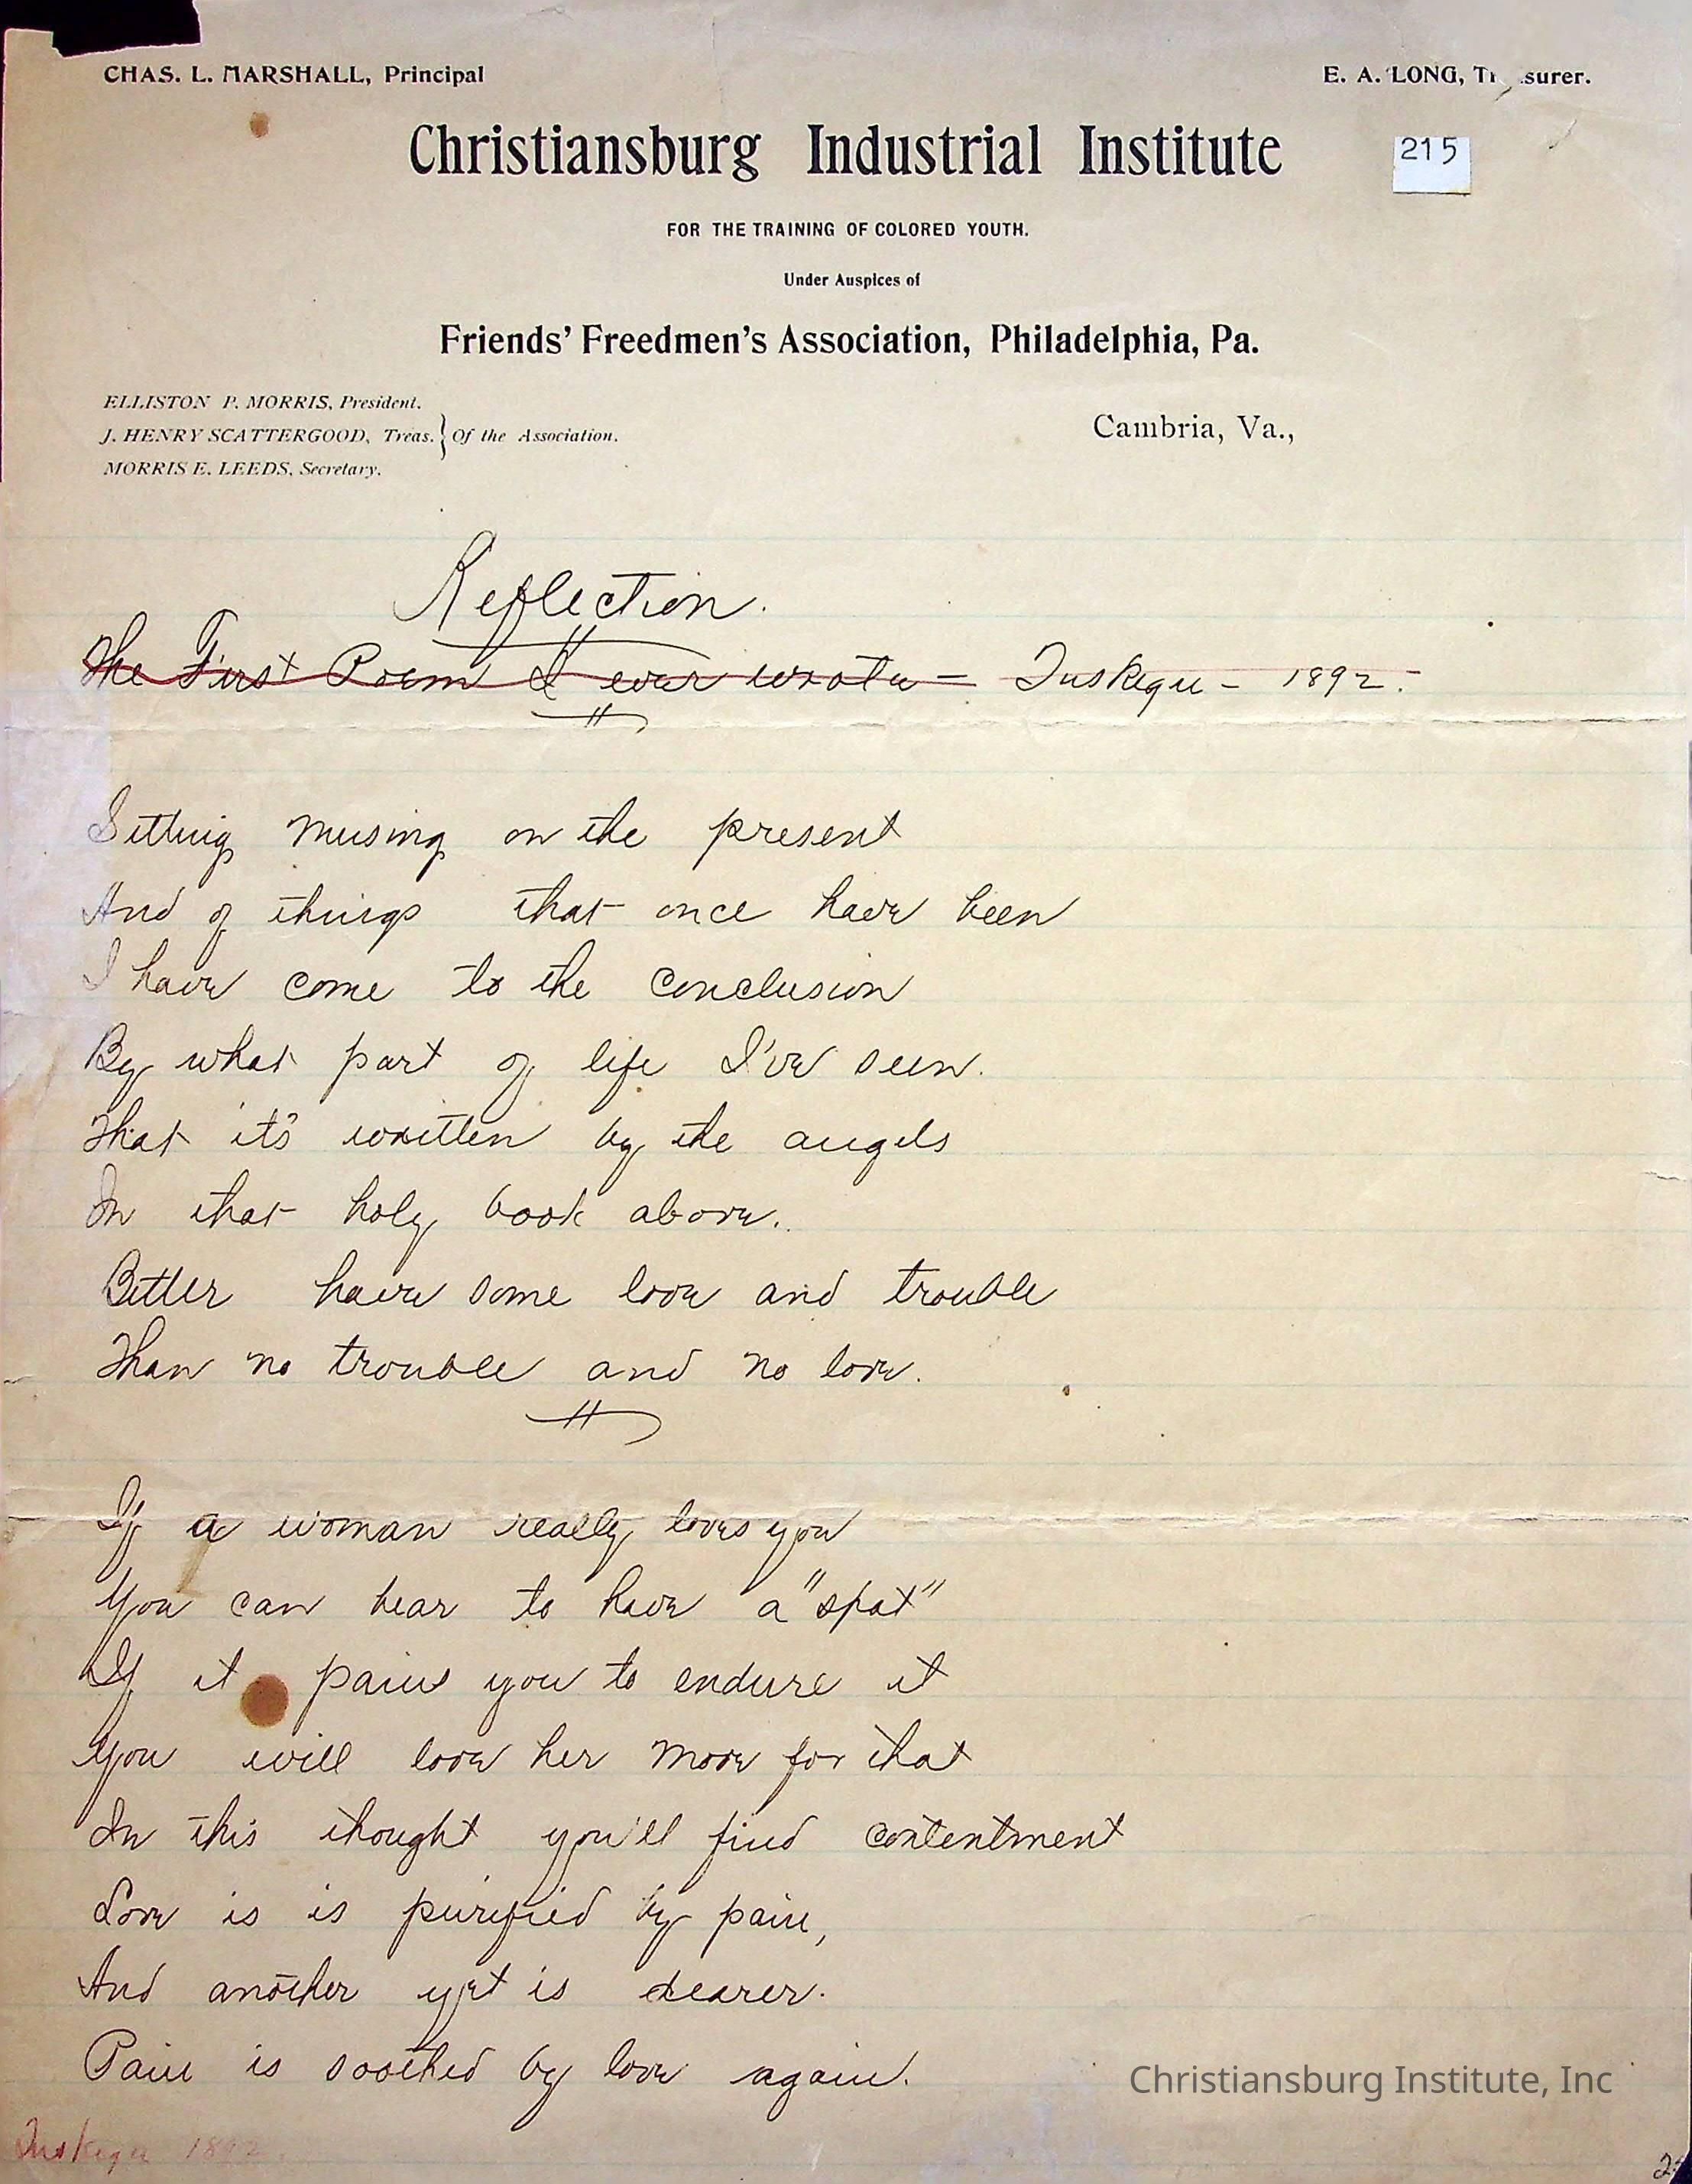 CHAS. L. MARSHALL, Principal
E. A. LONG, Tr surer.
Christiansburg Industrial Institute
215
FOR THE TRAINING OF COLORED YOUTH.
Under Auspices of
Friends' Freedmen's Association, Philadelphia, Pa.
ELLISTON P. MORRIS, President.
J. HENRY SCATTERGOOD, Treas. } Of the Association.
MORRIS E. LEEDS, Secretary.
Cambria, Va.,
Reflection.
The First Poem I ever wrote – Tuskegee – 1892.
Sitting musing on the present
And of things that once have been
I have come to the conclusion
By what part of life I've seen.
That it's written by the angels
In that holy book above.
Better have some love and trouble
Than no trouble and no love.
If a woman really loves you
You can bear to have a "spat"
If it pains you to endure it
You will love her more for that
In this thought you'll find contentment
Love is is purified by pain,
And another yet is dearer.
Pain is soothed by love again.
Christiansburg Institute, Inc
Tuskegee 1892.